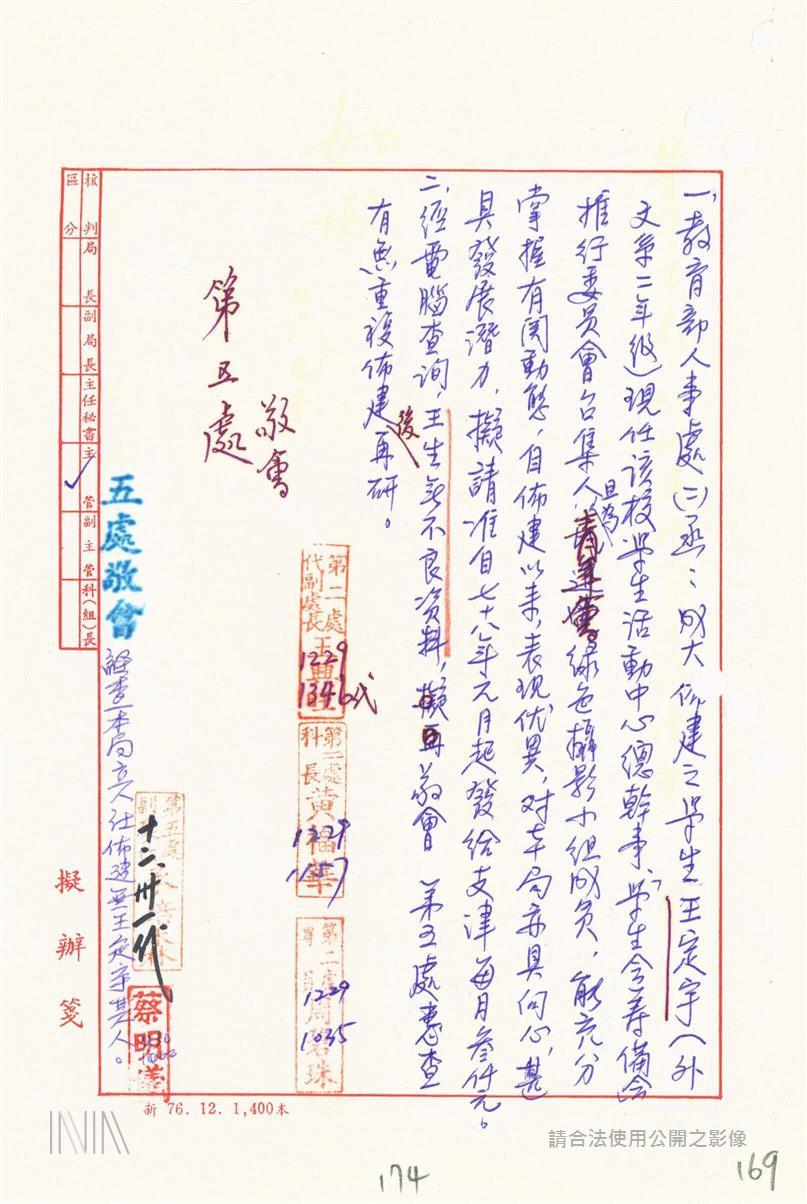 一、教育部人事處㈡函：成大佈建之學生王定宇（外
文系二年級）現任該校學生活動中心總幹事、學生會籌備會
推行委員會召集人，且為綠色攝影小組成員，能充分
掌握有関動態，自佈建以来，表現优異，对本局亦具向心，甚
具發展潛力，擬請准自七十八年元月起發給支津每月叁仟元。
二、經電腦查詢，王生無不良資料，擬敬會第五處惠查
有無重複佈建後再研。
敬會
第五處
第二處
代副處長
1229
1346代
第二處
科長 黃福華
1229
1157
第二處
專員 周碧珠
1229
1035
五處敬會
經查本局立人社佈建無王定宇其人。
第五處
副
十二、卅一代
蔡明儀
1230
核判區分
局長
副局長
主任秘書
主管
副主管
科(組)長
擬辦箋
新 76. 12. 1,400本
請合法使用公開之影像
174
169